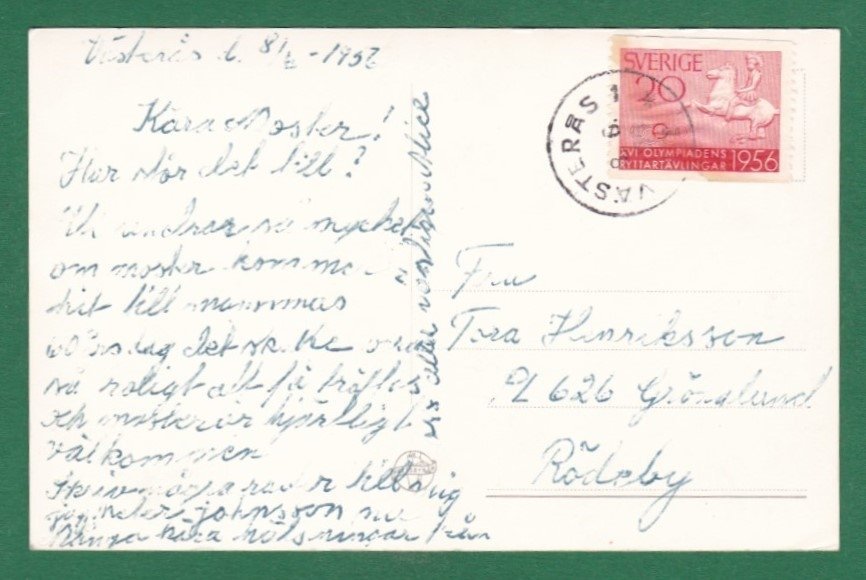 Västerås d. 8/6 - 1956
Kära Moster!
Hur står det till?
Vi undrar så mycket
om moster kommer
hit till mammas
60 årsdag det skulle
så roligt att få träffas
och moster är hjärtligt
välkommen
Skriv några rader till mig
jag heter Johnsson nu
Många kära hälsningar från
Alice
SVERIGE
20
XVI OLYMPIADENS
RYTTARTÄVLINGAR 1956
VÄSTERÅS 1
Fru
Tora Henriksson
Pl 626 Gröndund
Rödeby